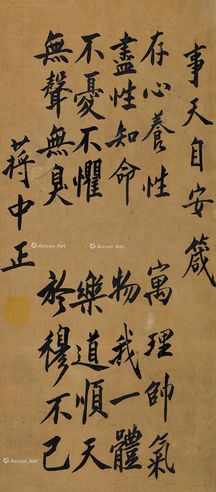 事天自安箴
存心養性 寓理帥氣
盡性知命 物我一體
不憂不懼 樂道順天
無聲無臭 於穆不已
蔣中正
Artron.Net
Artron.Net
Artron.Net
Artron.Net